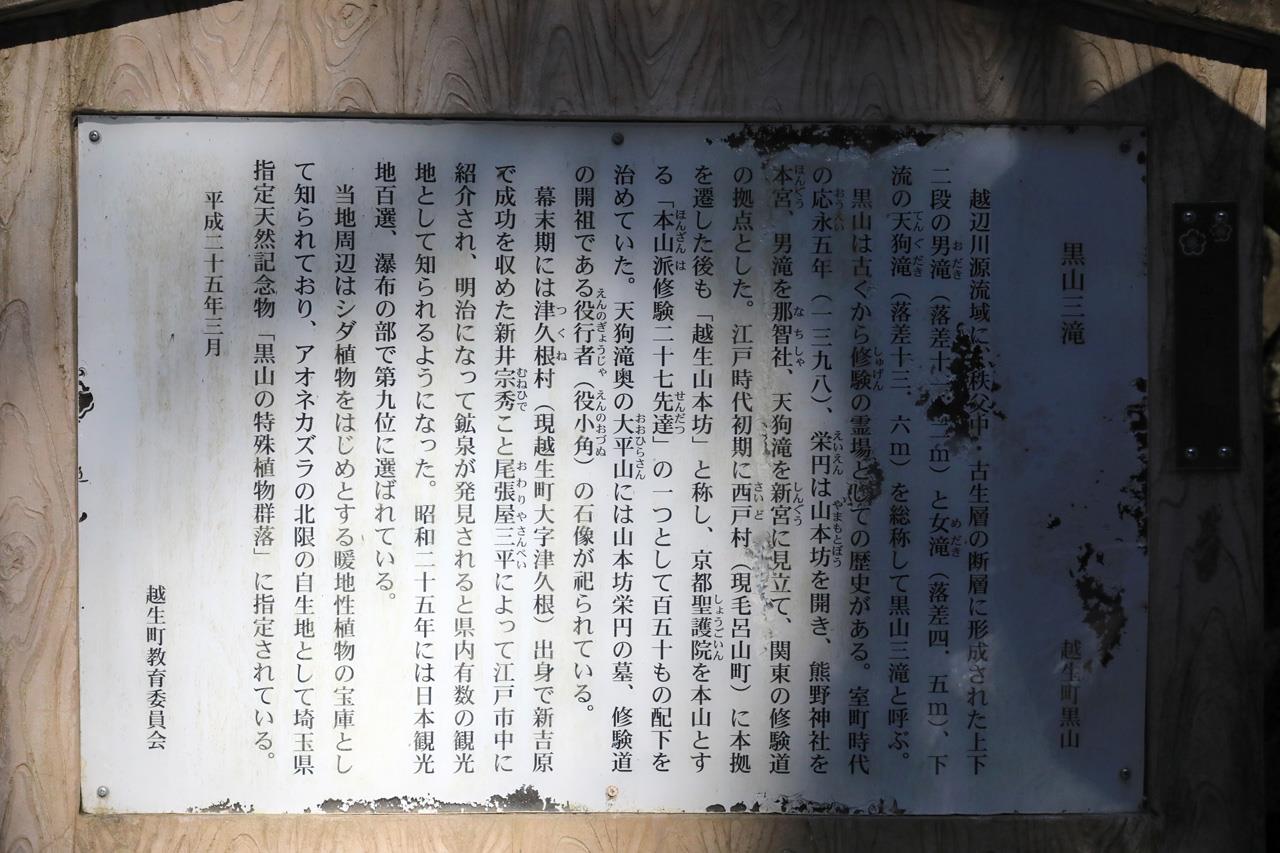 黒山三滝
越生町黒山
越辺川源流域に、秩父中・古生層の断層に形成された上下
二段の男滝（落差十一.二ｍ）と女滝（落差四．五ｍ）、下
流の天狗滝（落差十三．六ｍ）を総称して黒山三滝と呼ぶ。
黒山は古くから修験の霊場としての歴史がある。室町時代
の応永五年（一三九八）、栄円は山本坊を開き、熊野神社を
本宮、男滝を那智社、天狗滝を新宮に見立て、関東の修験道
の拠点とした。江戸時代初期に西戸村（現毛呂山町）に本拠
を遷した後も「越生山本坊」と称し、京都聖護院を本山とす
る「本山派修験二十七先達」の一つとして百五十もの配下を
治めていた。天狗滝奥の大平山には山本坊栄円の墓、修験道
の開祖である役行者（役小角）の石像が祀られている。
幕末期には津久根村（現越生町大字津久根）出身で新吉原
で成功を収めた新井宗秀こと尾張屋三平によって江戸市中に
紹介され、明治になって鉱泉が発見されると県内有数の観光
地として知られるようになった。昭和二十五年には日本観光
地百選、瀑布の部で第九位に選ばれている。
当地周辺はシダ植物をはじめとする暖地性植物の宝庫とし
て知られており、アオネカズラの北限の自生地として埼玉県
指定天然記念物「黒山の特殊植物群落」に指定されている。
平成二十五年三月
越生町教育委員会